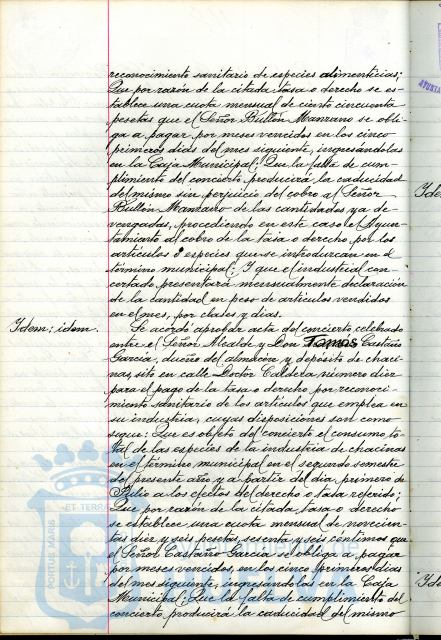 reconocimiento sanitario de especies alimenticias;
Que por razón de la citada tasa o derecho se es-
tablece una cuota mensual de ciento cincuenta
pesetas que el Señor Bullón Manzano se obli-
ga a pagar por meses vencidos en los cinco
primeros días del mes siguiente, ingresándolas
en la Caja Municipal; Que la falta de cum-
plimiento del concierto producirá la caducidad
del mismo sin perjuicio del cobro al Señor
Bullón Manzano de las cantidades ya de-
vengadas, procediendo en este caso el Ayun-
tamiento al cobro de la tasa o derecho por los
artículos o especies que se introduzcan en el
término municipal; Y que el industrial con-
certado presentará mensualmente declaración
de la cantidad en peso de artículos vendidos
en el mes, por clases y días.
Idem; idem.
Se acordó aprobar acta del concierto celebrado
entre el Señor Alcalde y Don Tomás Castaño
García, dueño del almacén y depósito de chaci-
nas, sito en calle Doctor Caldera, número diez
para el pago de la tasa o derecho por reconoci-
miento sanitario de los artículos que emplea en
su industria, cuyas disposiciones son como
sigue: Que es objeto del concierto el consumo to-
tal de las especies de la industria de chacinas
en el término municipal en el segundo semestre
del presente año y a partir del día primero de
Julio a los efectos del derecho o tasa referido;
Que por razón de la citada tasa o derecho
se establece una cuota mensual de novecien-
tas diez y seis pesetas, sesenta y seis céntimos que
el Señor Castaño García se obliga a pagar
por meses vencidos, en los cinco primeros días
del mes siguiente, ingresándolas en la Caja
Municipal; Que la falta de cumplimiento del
concierto producirá la caducidad del mismo
ET TERRA
PORTUS MARIS